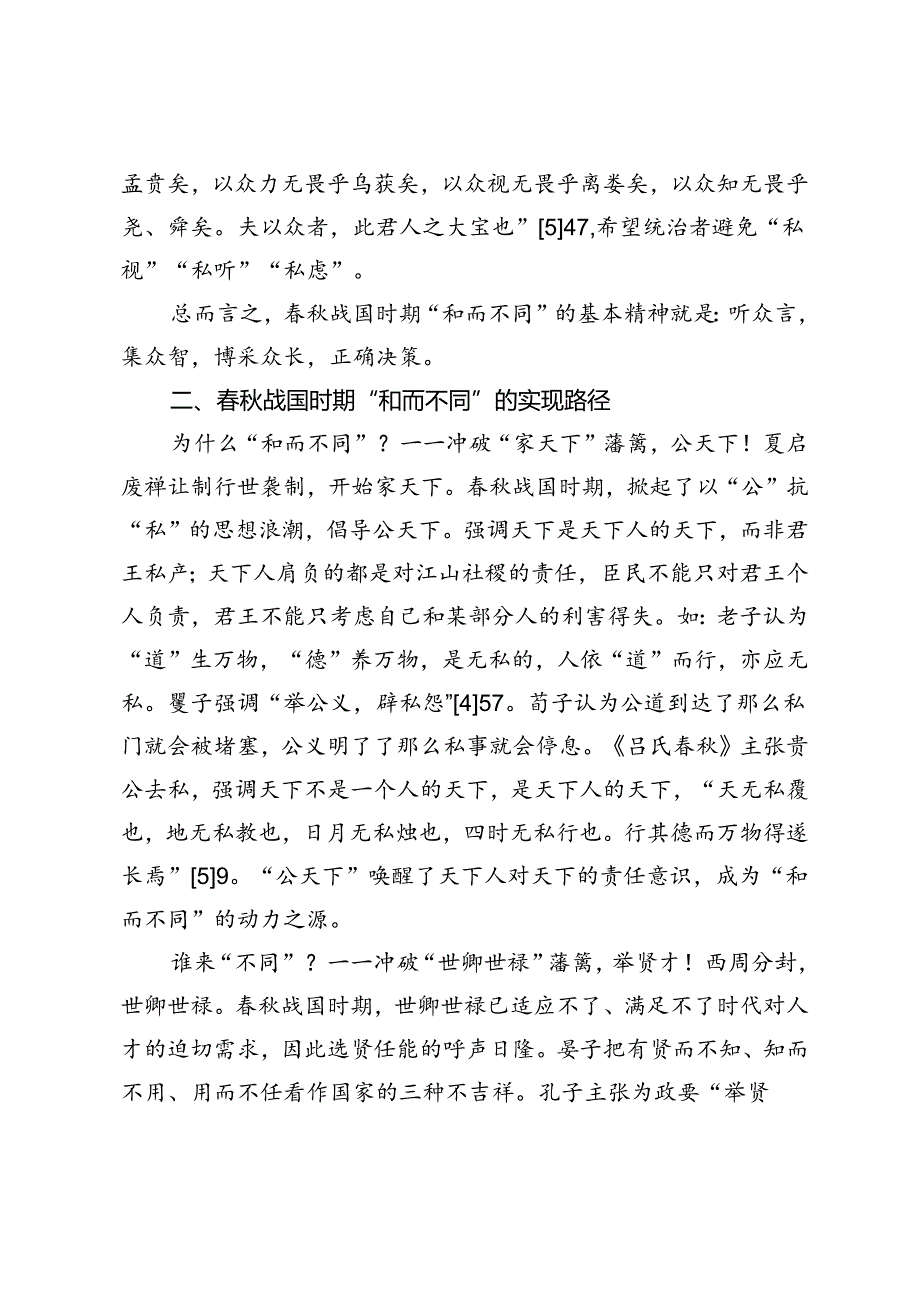 孟贲矣，以众力无畏乎乌获矣，以众视无畏乎离娄矣，以众知无畏乎
尧、舜矣。夫以众者，此君人之大宝也”[5]47,希望统治者避免“私
视”“私听”“私虑”。
总而言之，春秋战国时期“和而不同”的基本精神就是：听众言，
集众智，博采众长，正确决策。
二、春秋战国时期“和而不同”的实现路径
为什么“和而不同”？一一冲破“家天下”藩篱，公天下！夏启
废禅让制行世袭制，开始家天下。春秋战国时期，掀起了以“公”抗
“私”的思想浪潮，倡导公天下。强调天下是天下人的天下，而非君
王私产；天下人肩负的都是对江山社稷的责任，臣民不能只对君王个
人负责，君王不能只考虑自己和某部分人的利害得失。如：老子认为
“道”生万物，“德”养万物，是无私的，人依“道”而行，亦应无
私。墨子强调“举公义，辟私怨”[4]57。荀子认为公道到达了那么私
门就会被堵塞，公义明了了那么私事就会停息。《吕氏春秋》主张贵
公去私，强调天下不是一个人的天下，是天下人的天下，“天无私覆
也，地无私教也，日月无私烛也，四时无私行也。行其德而万物得遂
长焉”[5]9。“公天下”唤醒了天下人对天下的责任意识，成为“和
而不同”的动力之源。
谁来“不同”？一一冲破“世卿世禄”藩篱，举贤才！西周分封，
世卿世禄。春秋战国时期，世卿世禄已适应不了、满足不了时代对人
才的迫切需求，因此选贤任能的呼声日隆。晏子把有贤而不知、知而
不用、用而不任看作国家的三种不吉祥。孔子主张为政要“举贤